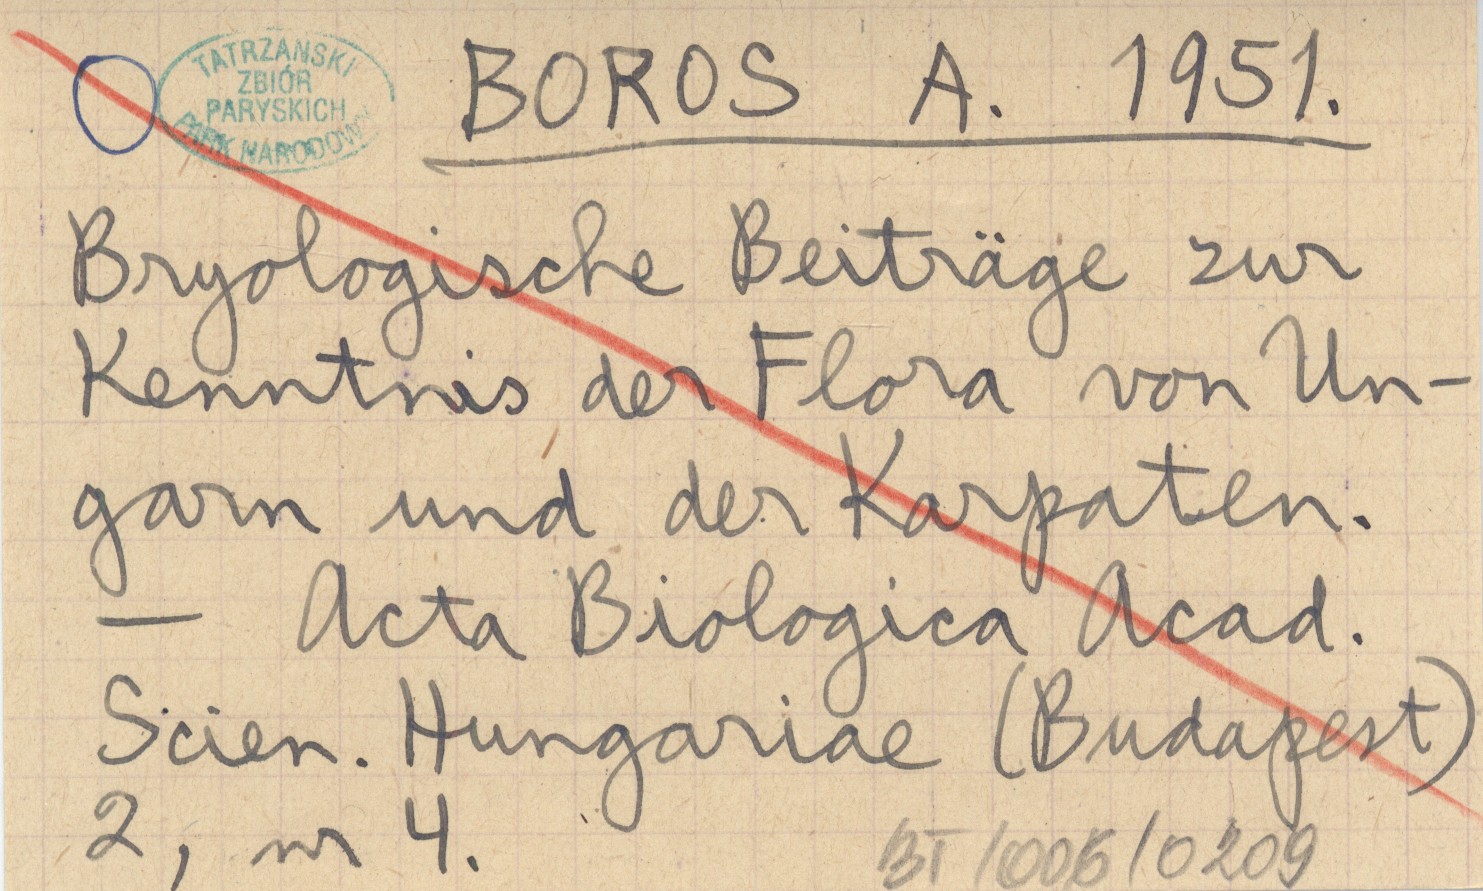 TATRZAŃSKI
ZBIÓR
PARYSKICH
PARK NARODOWY
BOROS A. 1951.
Bryologische Beiträge zur
Kenntnis der Flora von Un-
garn und der Karpaten.
— Acta Biologica Acad.
Scien. Hungariae (Budapest)
2, nr 4.
BT/006/0209